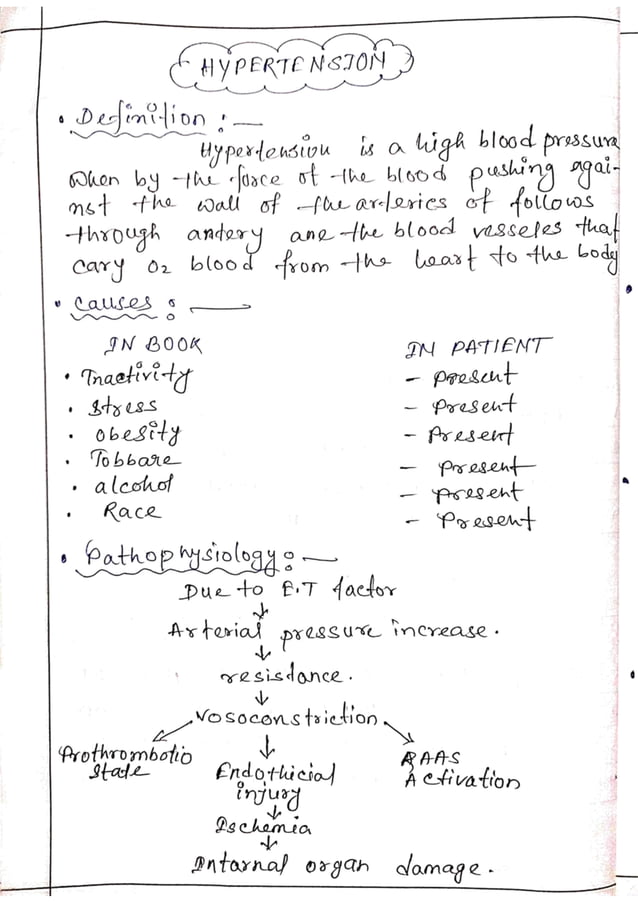 HYPERTENSION
• Definition :—
Hypertension is a high blood pressure
when by the force of the blood pushing agai-
nst the wall of the arteries of follows
through antery ane the blood vesseles that
cary O2 blood from the heart to the body
• Causes : —
IN BOOK IN PATIENT
• Inactivity – present
• Stress – present
• obesity – present
• Tobbare – present
• alcohol – present
• Race – present
• Pathophysiology : —
Due to E.T factor
↓
Arterial pressure increase.
↓
resisdance.
↓
Vosoconstriction.
Prothrombotio Endothicial RAAS
State injury Activation
↓
Ischemia
↓
Intarnal organ damage.